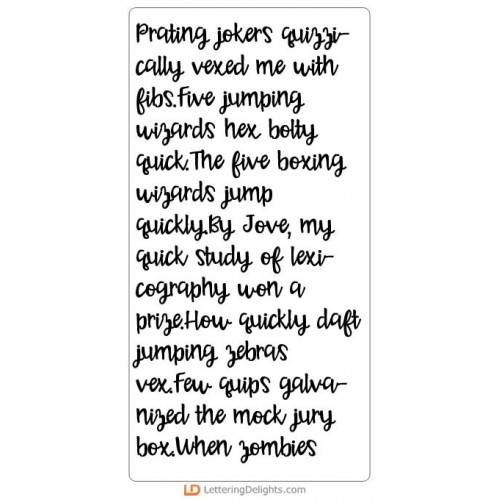 Prating jokers quizzi-
cally vexed me with
fibs.Five jumping
wizards hex bolty
quick.The five boxing
wizards jump
quickly.By Jove, my
quick study of lexi-
cography won a
prize.How quickly daft
jumping zebras
vex.Few quips galva-
nized the mock jury
box.When zombies
LD LetteringDelights.com